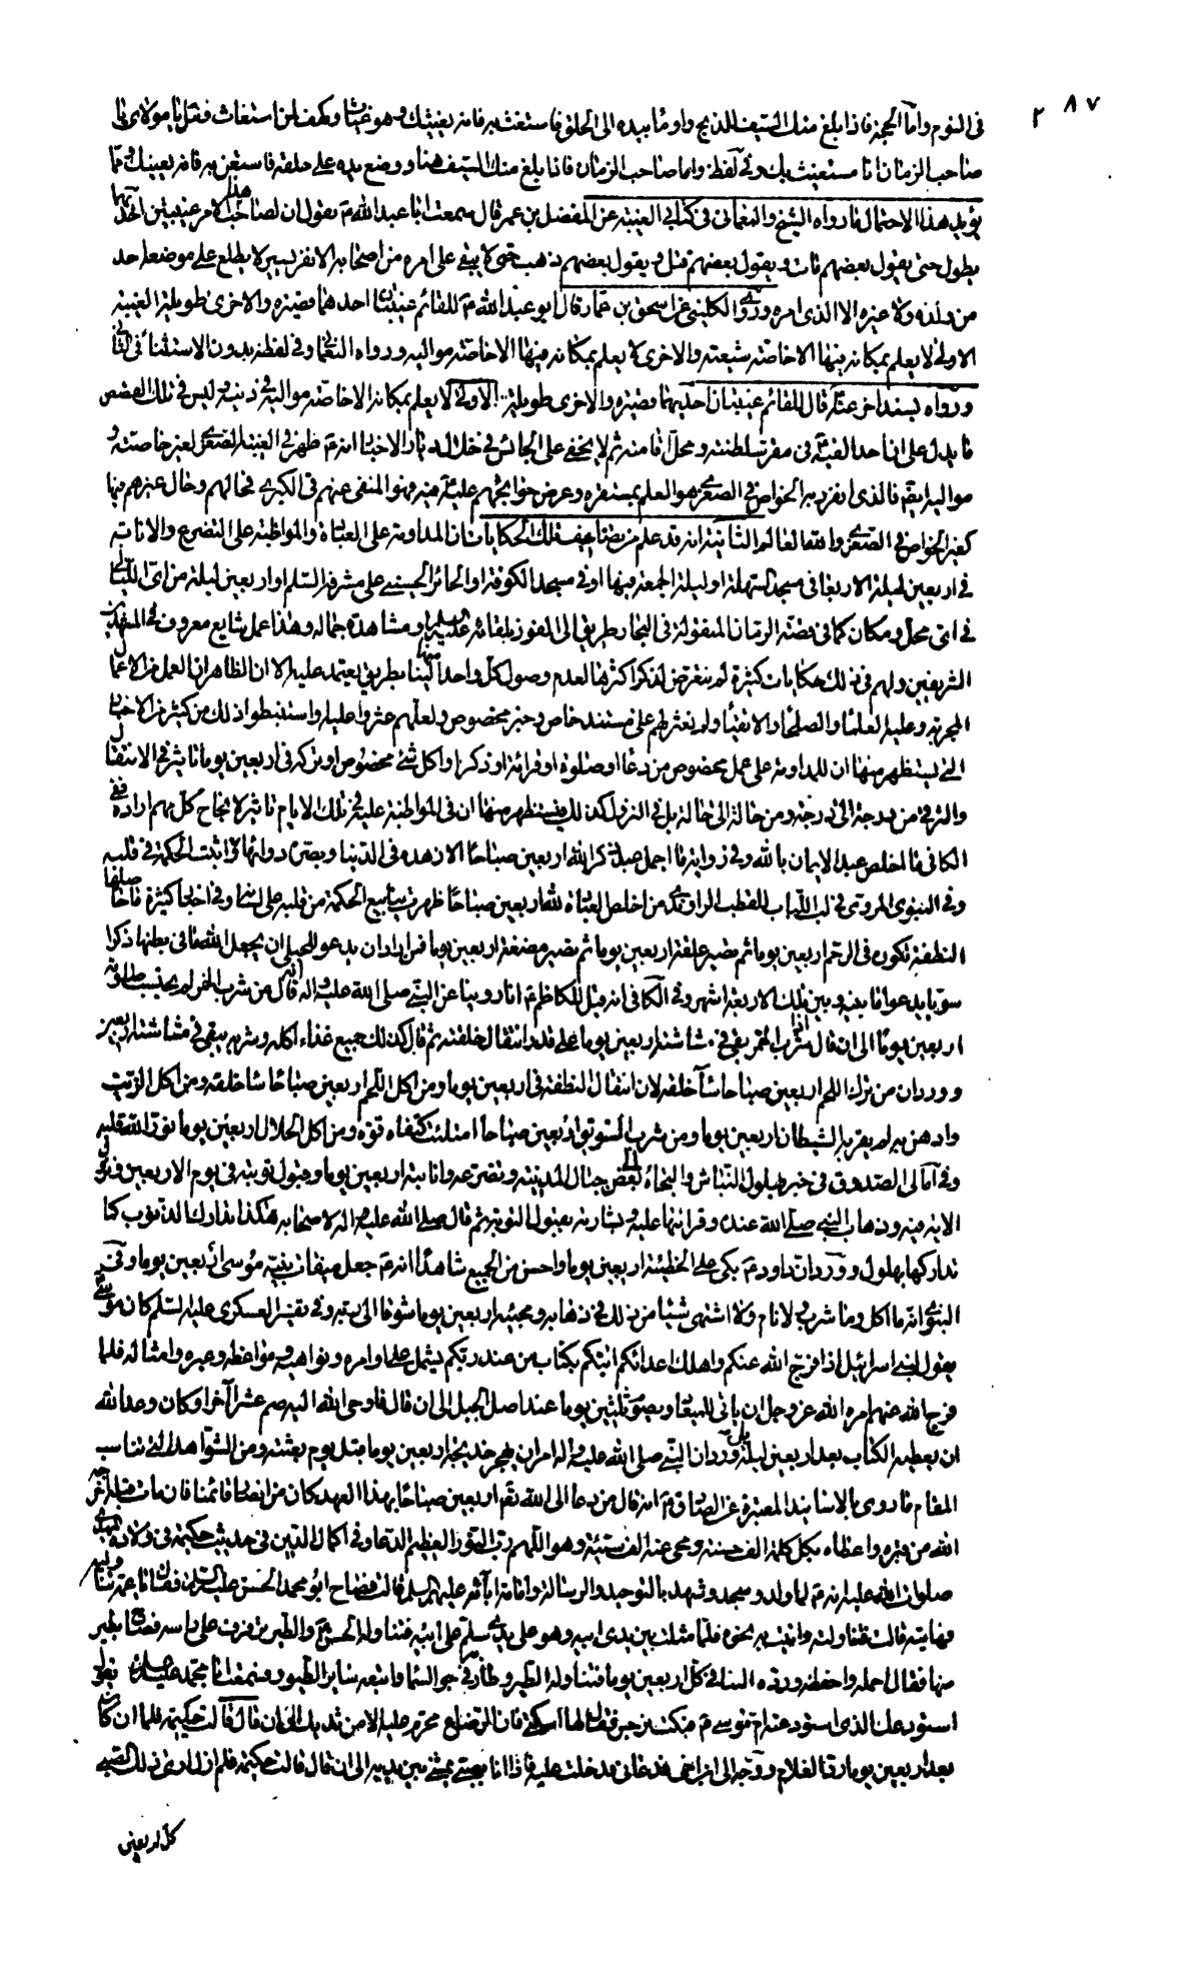 ٢٨٧
في النوم واما الحجة فاذا بلغ منك السيف للذبح واومأ بيده الى الحلق فاستغث به فانه يغيثك وهو غياث وكهف لمن استغاث فقل يا مولاي يا
صاحب الزمان انا مستغيث بك وفي لفظ واما صاحب الزمان فاذا بلغ منك السيف هنا ووضع يده على حلقه فاستعن به فانه يعينك ومما
يؤيد هذا الاحتمال ما رواه الشيخ والنعماني في كتابي الغيبة عن المفضل بن عمر قال سمعت ابا عبد الله ع يقول ان لصاحب هذا الامر غيبتين احديهما
يطول حتى يقول بعضهم مات ويقول بعضهم قتل ويقول بعضهم ذهب حتى لا يبقى على امره من اصحابه الا نفر يسير لا يطلع على موضعه احد
من ولده ولا غيره الا الذي امره وروى الكليني عن اسحق بن عمار قال ابو عبد الله ع للقائم غيبتان احدهما قصيرة والاخرى طويلة الغيبة
الاولى لا يعلم بمكانه فيها الا خاصة شيعته والاخرى لا يعلم بمكانه فيها الا خاصة مواليه ورواه النعماني وفي لفظه بدون الاستثناء في الثاني
ورواه بسند اخر عنه قال للقائم غيبتان احديهما قصيرة والاخرى طويلة الاولى لا يعلم بمكانه الا خاصة مواليه في دينه وليس في تلك القصص
ما يدل على ان احدا لقيه ع في مقر سلطنته ومحل اقامته ثم لا يخفى على الجائس في خلال ديار الاخبار انه ع ظهر في الغيبة الصغرى لغير خاصته و
مواليه ايضا فالذي انفرد به الخواص في الصغرى هو العلم بمستقره وعرض حوائجهم عليه ع فيه فهو المنفي عنهم في الكبرى فحالهم وحال غيرهم فيها
كغير الخواص في الصغرى والله العالم الثانية انه قد علم من تضاعيف تلك الحكايات ان المداومة على العبادة والمواظبة على التضرع والانابة
في اربعين ليلة الاربعاء في مسجد السهلة او ليلة الجمعة فيها او في مسجد الكوفة او الحائر الحسيني على مشرفه السلام او اربعين ليلة من اي الليالي
في اي محل ومكان كما في قصة الرمان المنقولة في البحار طريق الى الفوز بلقائه عليه السلام ومشاهدة جماله وهذا عمل شايع معروف في المشهدين
الشريفين ولهم في ذلك حكايات كثيرة لم نتعرض لذكر اكثرها لعدم وصول كل واحد منها الينا بطريق يعتمد عليه الا ان الظاهر ان العمل من الاعمال
المجربة وعليه العلماء والصلحاء والاتقياء ولم نعثر لهم على مستند خاص وخبر مخصوص ولعلهم عثروا عليه واستنبطوا ذلك من كثير من الاخبار
التي يستظهر منها ان للمداومة على عمل مخصوص من دعاء او صلوة او قرائة او ذكر او اكل شيء مخصوص او تركه في اربعين يوما تاثير في الانتقال
والترقي من درجة الى درجة ومن حالة الى حالة بل في النزول كذلك فيستظهر منها ان في المواظبة عليه في تلك الايام تاثير لانجاح كل مهم اراده ففي
الكافي ما اخلص عبد الايمان بالله وفي رواية ما اجمل عبد ذكر الله اربعين صباحا الا زهده في الدنيا وبصره دوائها واثبت الحكمة في قلبه
وفي النبوي المروي في لب اللباب للقطب الراوندي من اخلص العبادة لله اربعين صباحا ظهرت ينابيع الحكمة من قلبه على لسانه وفي اخبار كثيرة ما حاصلها
النطفة تكون في الرحم اربعين يوما ثم تصير علقة اربعين يوما ثم تصير مضغة اربعين يوما فمن اراد ان يدعو للحبلى ان يجعل الله ما في بطنها ذكرا
سويا يدعو ما بينه وبين تلك الاربعة اشهر وفي الكافي انه قيل للكاظم ع انا روينا عن النبي صلى الله عليه واله انه قال من شرب الخمر لم يحتسب صلاته
اربعين يوما الى ان قال اذا شرب الخمر بقي في مشاشته اربعين يوما على قدر انتقال خلقته ثم قال كذلك جميع غذاء اكله وشربه يبقى في مشاشته اربعين
وورد ان من ترك اللحم اربعين صباحا ساء خلقه لان انتقال النطفة في اربعين يوما ومن اكل اللحم اربعين صباحا ساء خلقه ومن اكل الزيت
وادهن به لم يقربه الشيطان اربعين يوما ومن شرب السويق اربعين صباحا امتلئت كتفاه قوة ومن اكل الحلال اربعين يوما نور الله قلبه
وفي امالي الصدوق في خبر بهلول النباش والتجائه الى بعض جبال المدينة وتضرعه وانابته اربعين يوما وقبول توبته في يوم الاربعين ونزول
الاية فيه وذهاب النبي صلى الله عنده وقرائتها عليه وبشارته بقبول التوبة ثم قال صلى الله عليه واله لاصحابه هكذا تدارك الذنوب كما
تداركها بهلول وورد ان داود ع بكى على الخطيئة اربعين يوما واحسن من الجميع شاهدا انه ع جعل ميقات نبيه موسى اربعين يوما وفي
النبوي انه ما اكل وما شرب ولا نام ولا اشتهى شيئا من ذلك في ذهابه ومجيئه اربعين يوما شوقا الى ربه وفي تفسير العسكري عليه السلام كان موسى
يقول لبني اسرائيل اذا فرج الله عنكم واهلك اعدائكم اتيتكم بكتاب من عند ربكم يشمل على اوامره ونواهيه ومواعظه وعبره وامثاله فلما
فرج الله عنهم امره الله عز وجل ان ياتي للميعاد ويصوم ثلثين يوما عند اصل الجبل الى ان قال فاوحى الله اليه صم عشرا آخر وكان وعد الله
ان يعطيه الكتاب بعد اربعين ليلة وورد ان النبي صلى الله عليه واله امر ان يهجر خديجة اربعين يوما قبل يوم بعثته ومن الشواهد التي تناسب
المقام ما روي بالاسانيد المعتبرة عن الصادق ع انه قال من دعا الى الله تع اربعين صباحا بهذا العهد كان من انصار قائمنا فان مات قبله اخرجه
الله من قبره واعطاه بكل كلمة الف حسنة ومحى عنه الف سيئة وهو اللهم رب النور العظيم الدعاء وفي اكمال الدين في حديث حكيمة في ولادة المهدي
صلوات الله عليه انه ع لما ولد وسجد وشهد بالتوحيد والرسالة وامامة آبائه عليهم السلام قالت فصاح ابو محمد الحسن عليه السلام فقال يا عمة تناوليه
فهاتيه قالت فتناولته واتيت به نحوه فلما مثلت بين يدي ابيه وهو على يدي سلم على ابيه فتناوله الحسن ع والطير ترفرف على راسه فصاح بطير
منها فقال احمله واحفظه ورده الينا في كل اربعين يوما فتناوله الطير وطار في جو السماء واتبعه ساير الطيور وسمعت ابا محمد عليه السلام يقول
استودعك الذي استودعته ام موسى ع فبكت نرجس فقال لها اسكتي فان الرضاع محرم عليه الا من ثديك الى ان قال قالت حكيمة فلما ان كان
بعد اربعين يوما رد الغلام ووجه الى ابن اخي فدعاني فدخلت عليه فاذا انا بصبي يمشي بين يديه الى ان قال قالت حكيمة فلم ازل ارى ذلك الصبي
كل اربعين